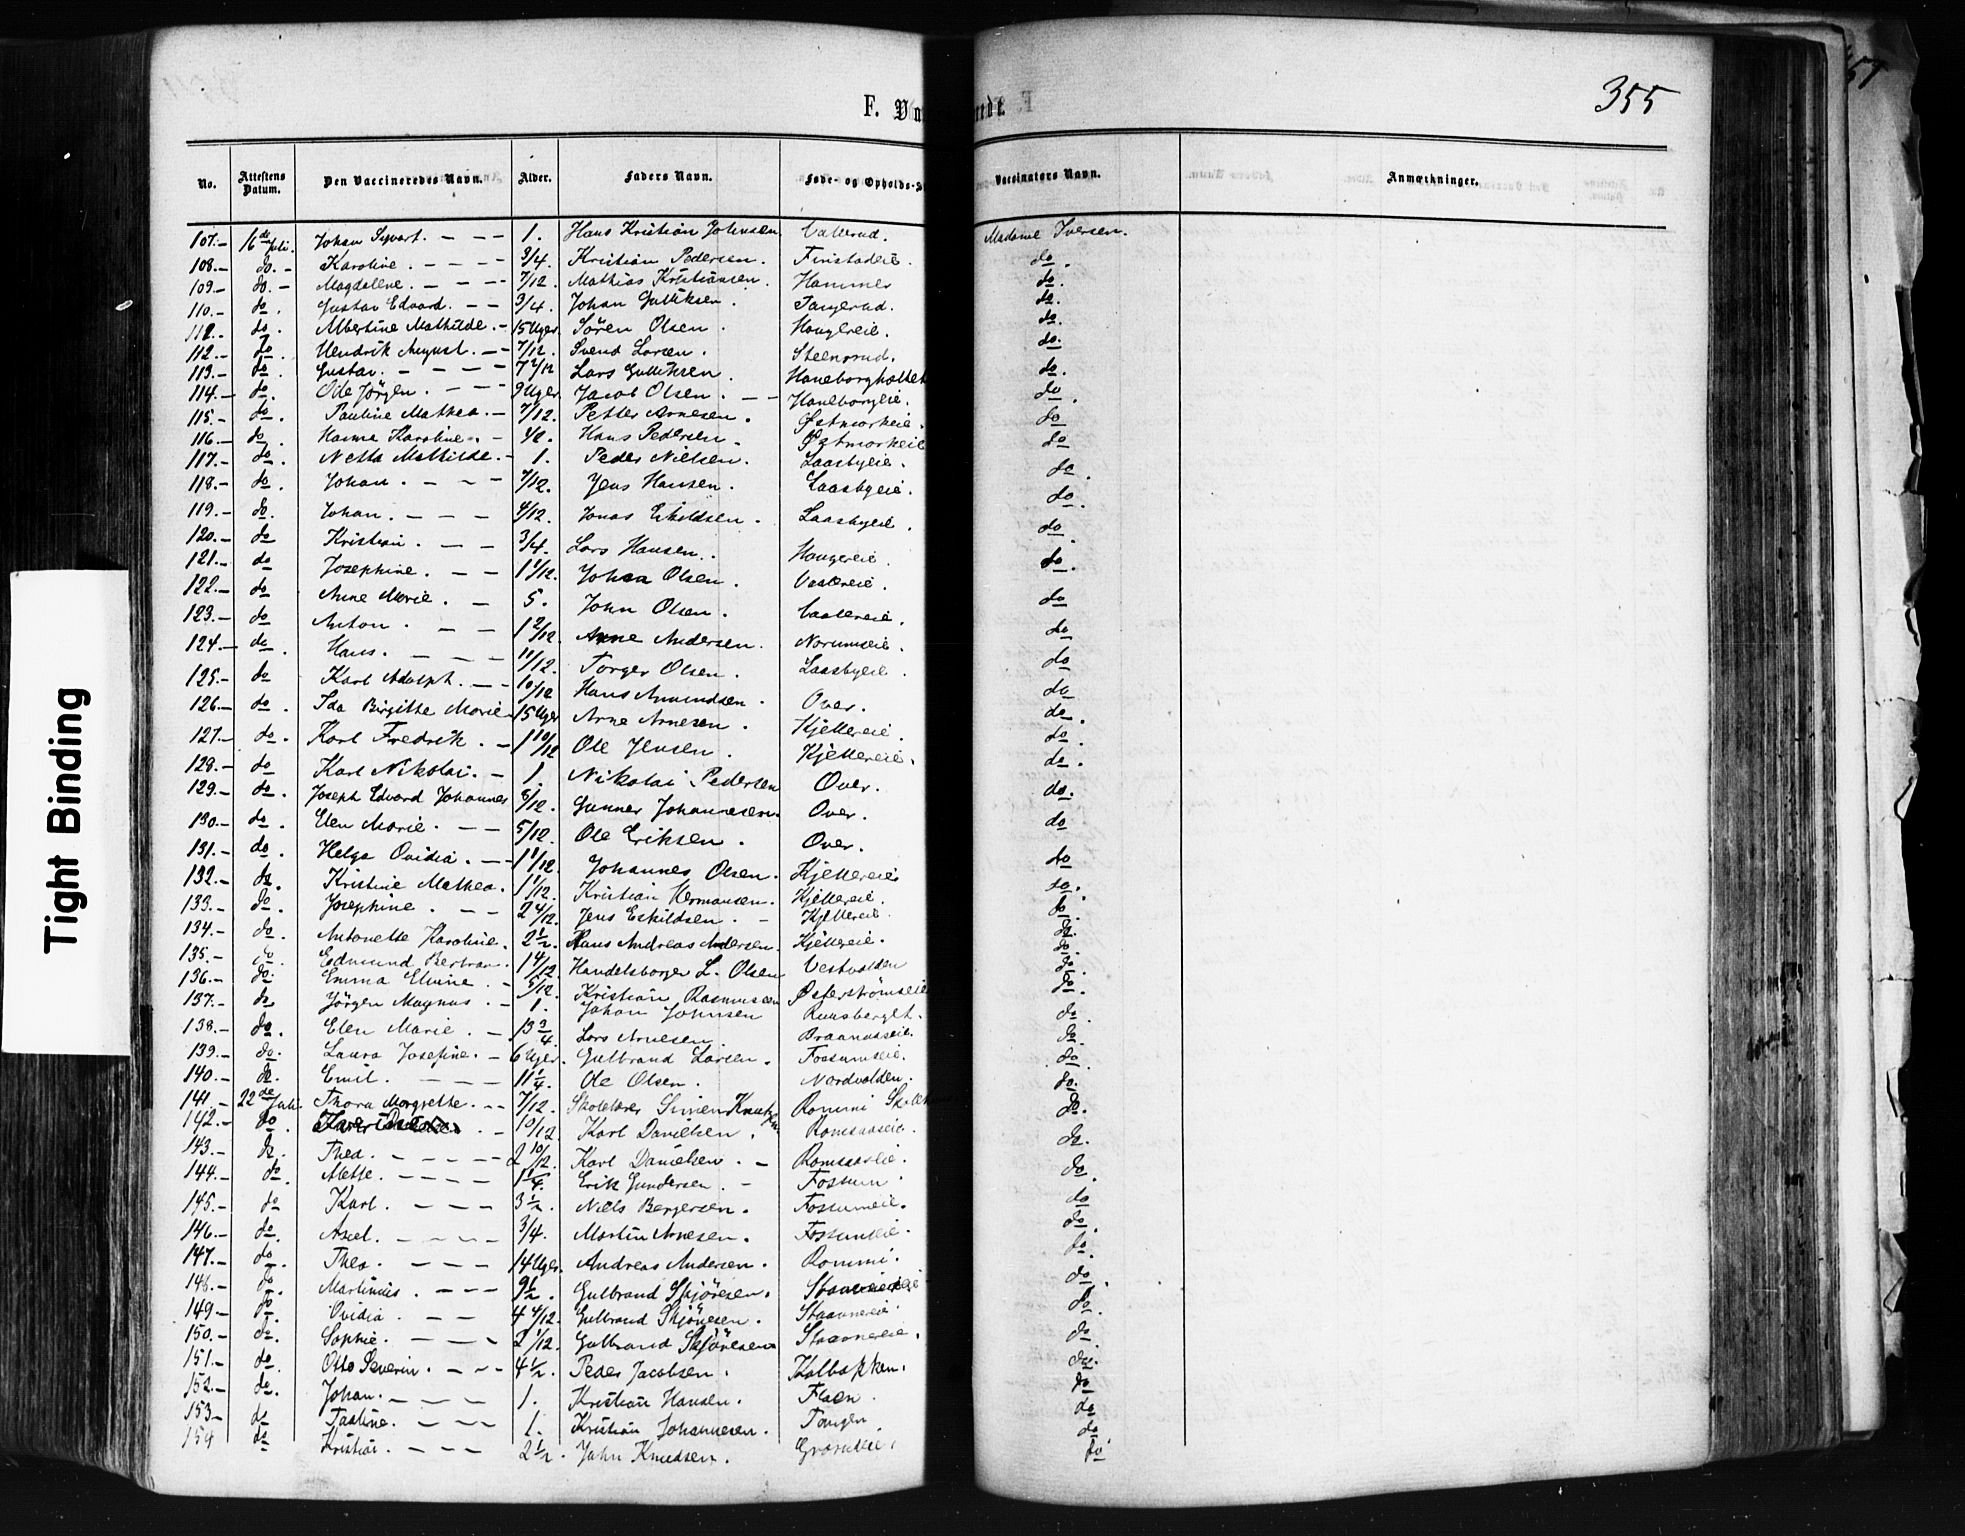 355
F. Va
No. Attestens Datum. Den Vaccineredes Navn. Alder. Faders Navn. Føde- og Opholds- Vaccinators Navn. Anmærkninger.
107.– 16de Juli. Johan Syvart. – – – 1. Hans Kristian Johnsen Vallerud. Madame Iversen.
108.– do. – Karoline. – – – – 3/4. Kristian Pedersen. Finstadeie. do.
109.– do. – Magdalene. – – – – 7/12. Mathias Kristiansen. Hammer do.
110.– do. Gustav Edvard. – – 3/4. Johan Gulliksen. Tangerud. do.
112.– do. Albertine Mathilde. – 15 Uger. Sören Olsen. Hauglieie. do.
112.– do. Hendrik August. – – 7/12. Svend Larsen. Steensrud. do.
113.– do. Gustav. – – – – 7 2/12 Lars Gulliksen. Haneborgholtet do.
114.– do. Ole Jörgen. – – – 9 Uger. Jacob Olsen. – – Haneborgeie. do.
115.– do. Pauline Mathea. – 7/12. Petter Arnesen. Østmorkeie. do
116.– do. Hanna Karoline. – 1/2. Hans Pedersen. Østmorkeie do
117.– do. Netta Mathilde. – 1. Peder Nielsen. Laasbyeie. do.
118.– do. Johan. – – – 7/12. Jens Hansen. Laasbyeie. do.
119.– do. Johan. – – – 4/12. Jonas Eskildsen. Laasbyeie. do.
120.– do Kristian. – – 3/4. Lars Hansen. Haugereie. do.
121.– do Josephine. – – 1 1/12. Johan Olsen. Valereie. do
122.– do Anne Marie. – 5. John Olsen. Valereie. do
123.– do Anton. – – 1 2/12. Arne Andersen. Norumseie. do
124.– do. Hans. – – – 11/12. Torger Olsen. Laasbyeie. do
125.– do Karl Adolph. – – 10/12 Hans Amundsen. Over. do
126.– do. Ida Birgitte Marie 15 Uger Arne Arnesen. Kjellereie. do.
127.– do. Karl Fredrik. – – 1 10/12 Ole Jensen. Kjellereie. do.
128.– do Karl Nikolai. – 1. Nikolai Pedersen Over. do.
129.– do. Joseph Edvard Johannes 8/12. Gunner Johannesen. Over. do.
130.– do. Elen Marie. – – 5/12. Ole Eriksen. Over. do
131.– do. Helga Ovidia. – – 1 1/12. Johannes Olsen. Kjellereie do
132.– do. Kristine Mathea. 1 1/12. Kristian Hermansen. Kjellereie. do.
133.– do. Josephine. – – 2 4/12. Jens Eskildsen. – Kjellereie. do.
134.– do. Antonette Karoline. 2 1/2. Hans Andreas Andersen. Kjellereie. do.
135.– do. Edmund Bertran. 1 4/12. Handelsborger L. Olsen Vestvolden do.
136.– do. Emma Elmine. – 5/12. Kristian Rasmussen Østerströmseie do.
137.– do Jörgen Magnus. – 1. Johan Johnsen Ruusberget. do.
138.– do. Elen Marie. – 13 3/4 Lars Arnesen. Braanaaseie. do.
139.– do. Laura Josefine. – 6 Uger. Gulbrand Larsen. Fossumseie. do
140.– do. Emil. – – – – 11 1/4. Ole Olsen. Nordvolden. do.
141.– 22de Juli. Thora Margrethe. – – 7/12. Skolelærer Simen Knut Rommi do.
142.– do. – 10/12. Karl Danielsen. Romsaaseie. do.
143.– do. Thea. – – – – 2 10/12. Karl Danielsen. – Romsaaseie. do.
144.– do. Mette. – – – – 1 1/4. Erik Gundersen. – Fossum. do
145.– do Karl. – – – 3 1/2. Niels Bergersen. Fossumeie. do.
146.– do. Axel. – – – 3/4. Martin Arnesen. Fossumeie. do.
147.– do. Thea. – – – 14 Uger. Andreas Andersen. Rommi. do.
148.– do. Martinius. – – – 9 1/2. Gulbrand Skjöresen. do.
149.– do. Ovidia. – – 4 4/12. Gulbrand Skjönesen. Staavneeie. do
150.– do. Sophie. – – – – 2 1/12. Gulbrand Skjöresen Staavneeie. do.
151.– do. Otto Severin. – – – 4 1/2. Peder Jacobsen. Kolbakken. do
152.– do. Johan. – – – – 1. Kristian Hansen. Flaen. do
153.– do Taaline. – – – – 1. Kristian Johannesen. Tangen do
154 do Kristian. – – – 2 1/2. John Knudsen. do
Tight Binding